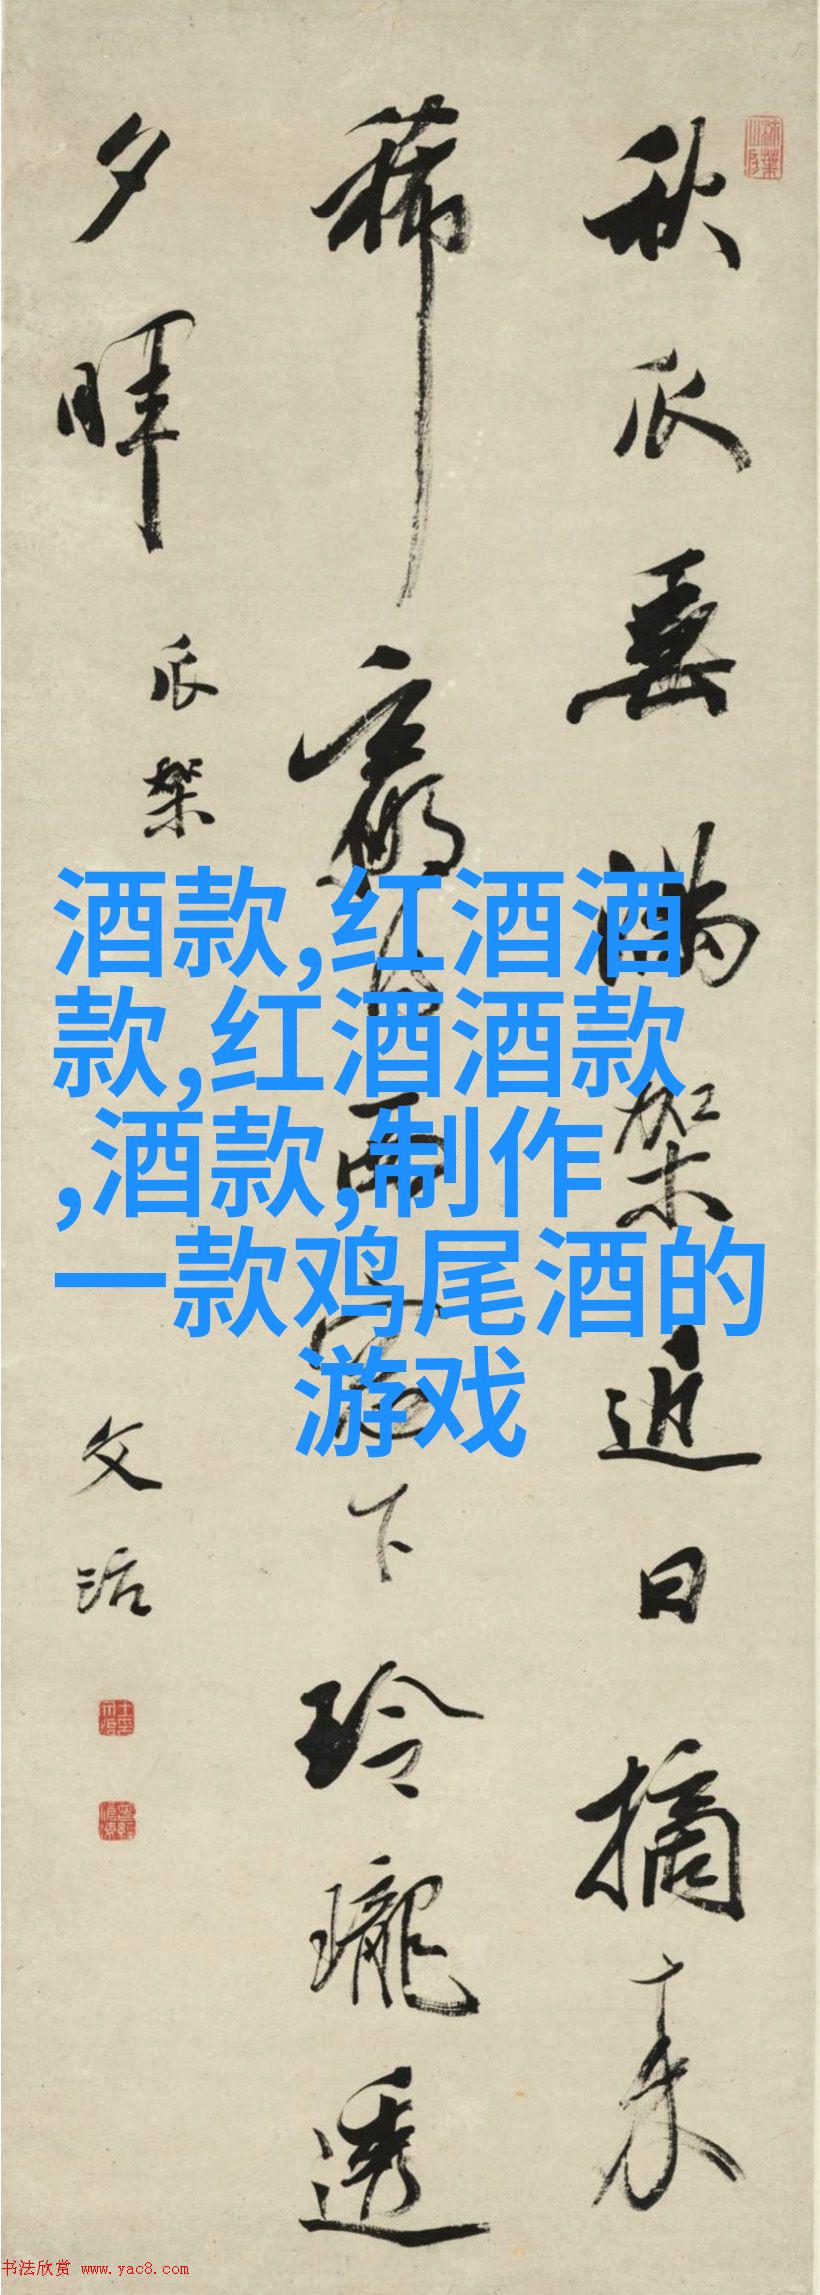 秋瓜垂满架近日摘来
稀赢得西窗下玲珑透
夕晖
瓜架
文治
酒款,红酒酒
款,红酒酒款
,酒款,制作
一款鸡尾酒的
游戏
书法欣赏 www.yac8.com